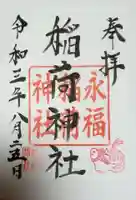 奉拝
稲荷神社
永福
稲荷
神社
令和三年八月二五日